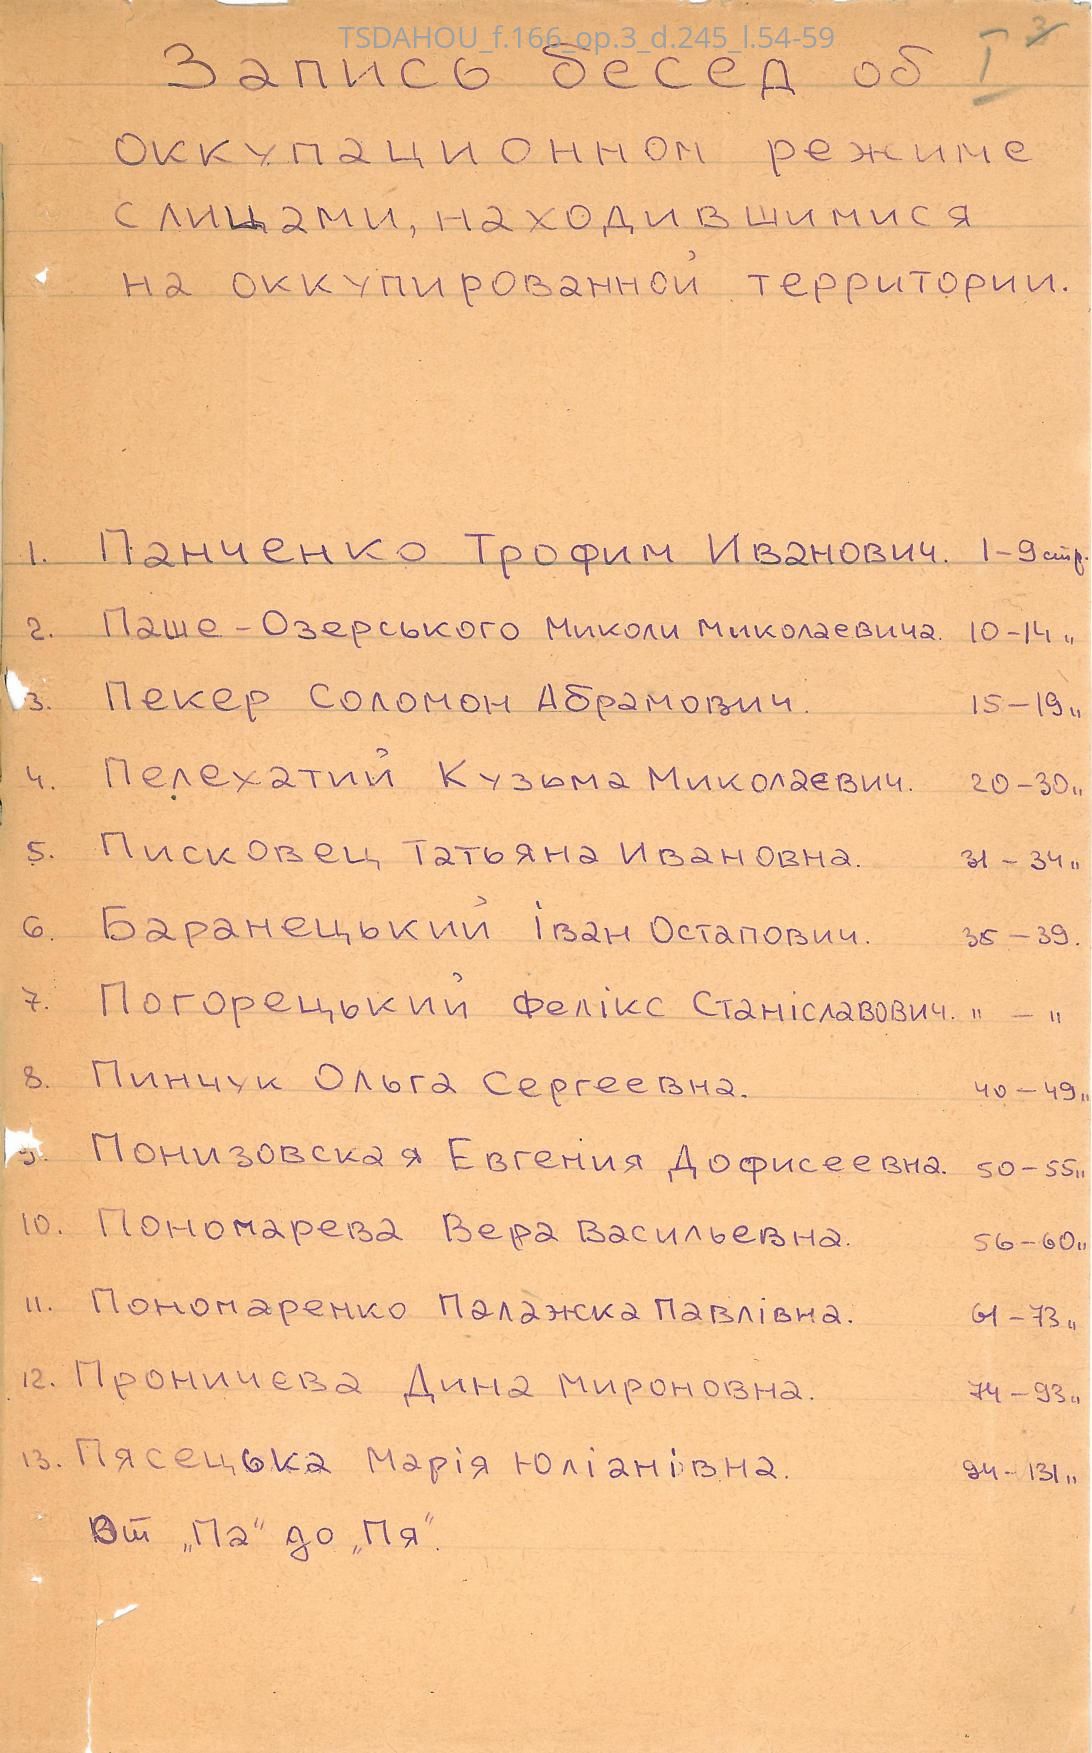 TSDAHOU_f.166_op.3_d.245_l.54-59
Запись бесед об I 3
оккупационном режиме
с лицами, находившимися
на оккупированной территории.
1. Панченко Трофим Иванович. 1-9 стр.
2. Паше-Озерського Миколи Миколаевича. 10-14 "
3. Пекер Соломон Абрамович. 15-19 "
4. Пелехатий Кузьма Миколаєвич. 20-30 "
5. Писковец Татьяна Ивановна. 31-34 "
6. Баранецький Іван Остапович. 35-39.
7. Погорецький Фелікс Станіславович. " - "
8. Пинчук Ольга Сергеевна. 40-49 "
9. Понизовская Евгения Дофисеевна. 50-55 "
10. Пономарева Вера Васильевна. 56-60 "
11. Пономаренко Палажка Павлівна. 61-73 "
12. Проничева Дина Мироновна. 74-93 "
13. Пясецька Марія Юліанівна. 94-131 "
От „Па" до „Пя".